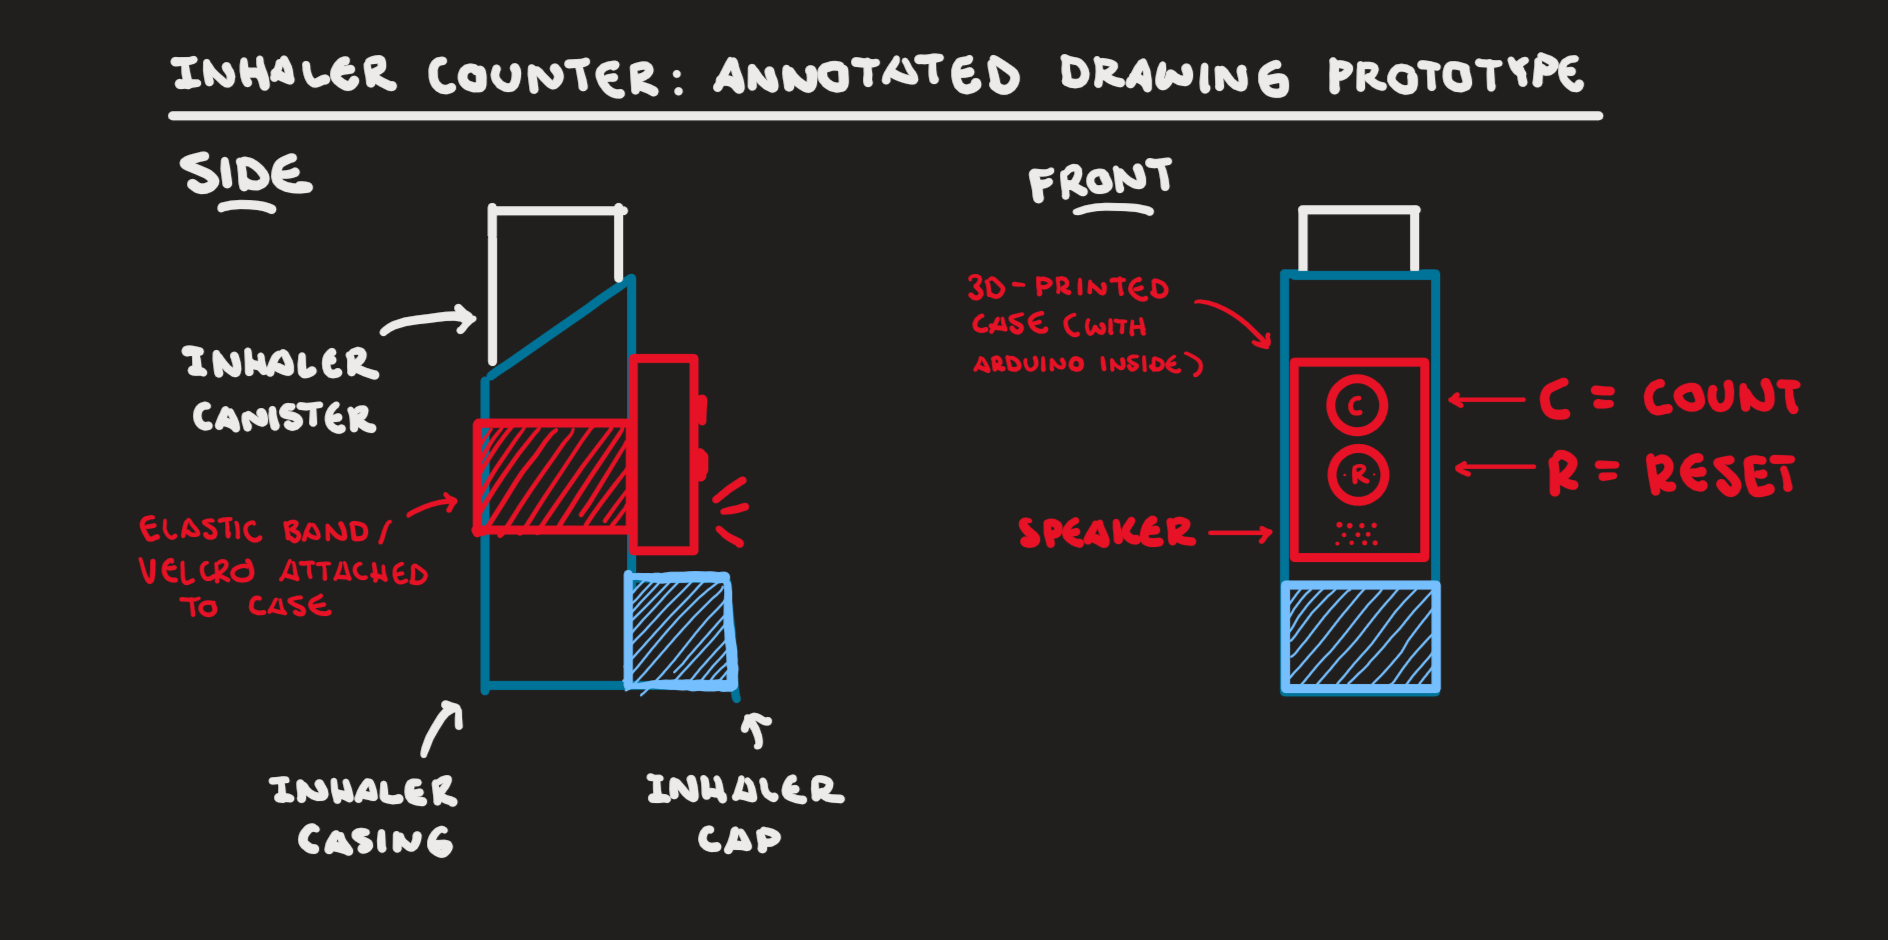 INHALER COUNTER: ANNOTATED DRAWING PROTOTYPE
SIDE
INHALER
CANISTER
ELASTIC BAND/
VELCRO ATTACHED
TO CASE
INHALER
CASING
INHALER
CAP
FRONT
3D-PRINTED
CASE (WITH
ARDUINO INSIDE)
C
R
C = COUNT
R = RESET
SPEAKER